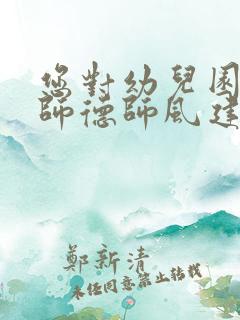 您對幼兒園
師德師風建
鄭新清
未经同意禁止转载